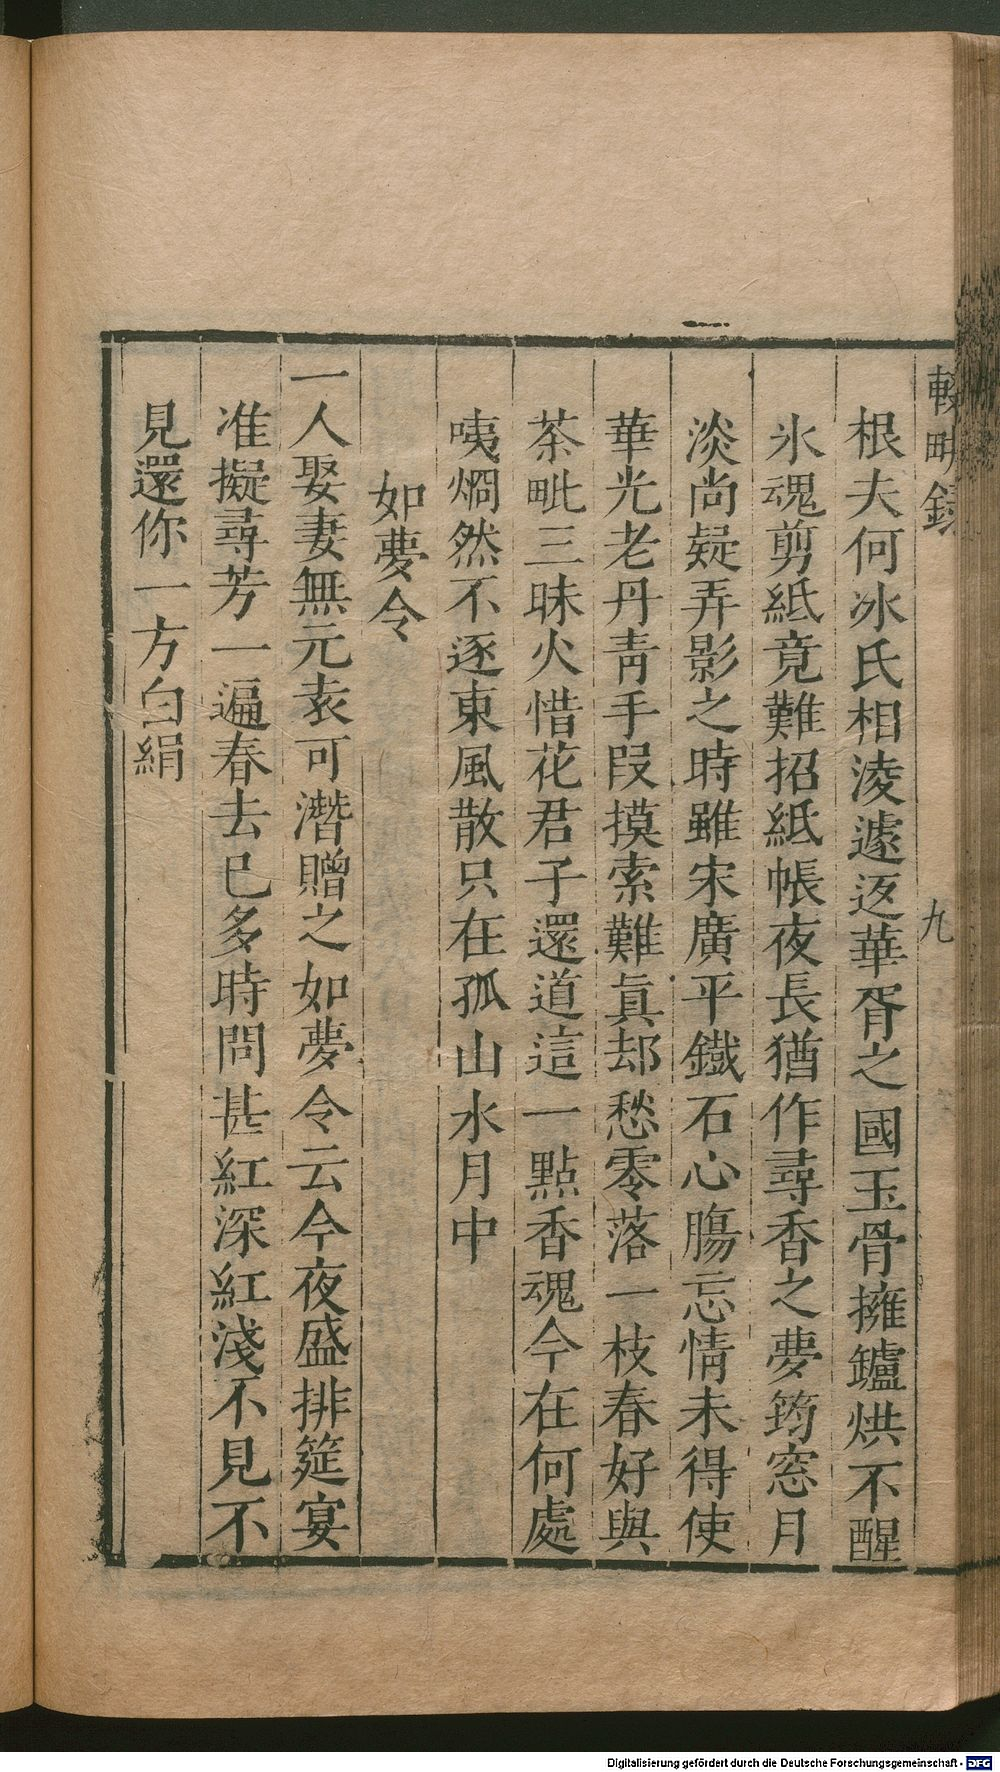 輟畊錄
九
根夫何冰氏相淩遽返華胥之國玉骨擁鑪烘不醒
氷魂剪紙竟難招紙帳夜長猶作尋香之夢筠窓月
淡尚疑弄影之時雖宋廣平鐵石心膓忘情未得使
華光老丹靑手段摸索難眞却愁零落一枝春好與
茶毗三昧火惜花君子還道這一點香魂今在何處
咦烱然不逐東風散只在孤山水月中
如夢令
一人娶妻無元袁可潛贈之如夢令云今夜盛排筵宴
准擬尋芳一遍春去巳多時問甚紅深紅淺不見不
見還你一方白絹
Digitalisierung gefördert durch die Deutsche Forschungsgemeinschaft - DFG